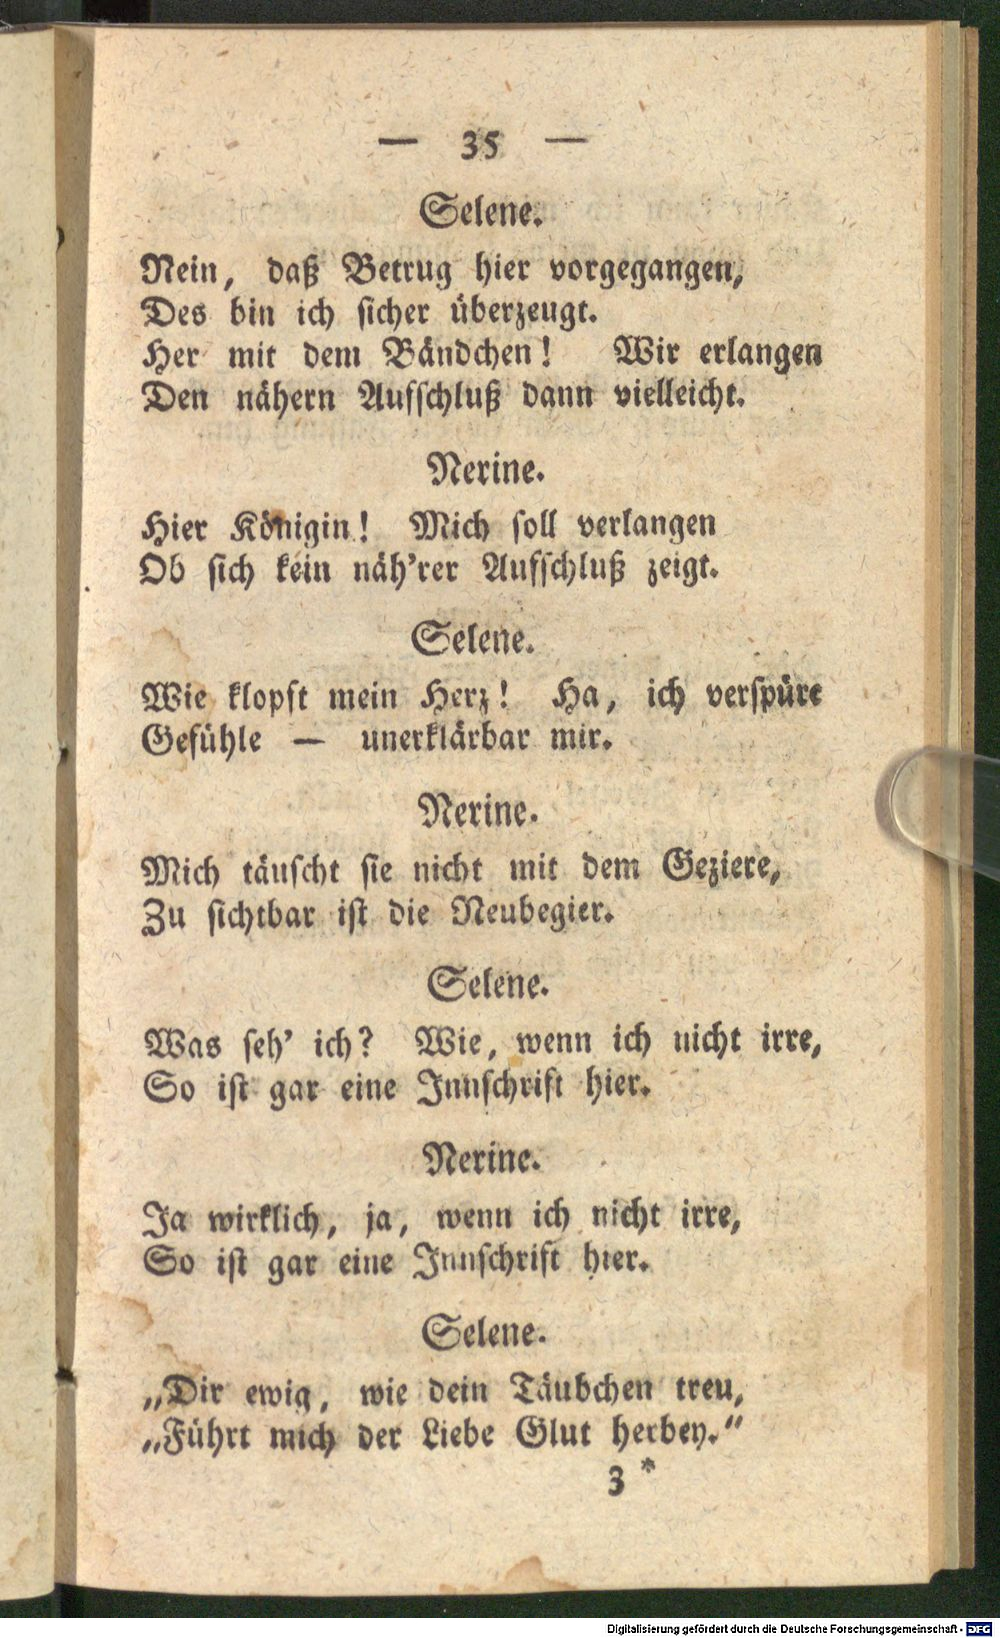 — 35 —
Selene.
Nein, daß Betrug hier vorgegangen,
Des bin ich sicher überzeugt.
Her mit dem Bändchen! Wir erlangen
Den nähern Aufschluß dann vielleicht.
Nerine.
Hier Königin! Mich soll verlangen
Ob sich kein näh'rer Aufschluß zeigt.
Selene.
Wie klopft mein Herz! Ha, ich verspüre
Gefühle — unerklärbar mir.
Nerine.
Mich täuscht sie nicht mit dem Geziere,
Zu sichtbar ist die Neubegier.
Selene.
Was seh' ich? Wie, wenn ich nicht irre,
So ist gar eine Innschrift hier.
Nerine.
Ja wirklich, ja, wenn ich nicht irre,
So ist gar eine Innschrift hier.
Selene.
„Dir ewig, wie dein Täubchen treu,
„Führt mich der Liebe Glut herbey.“
3 *
Digitalisierung gefördert durch die Deutsche Forschungsgemeinschaft - DFG